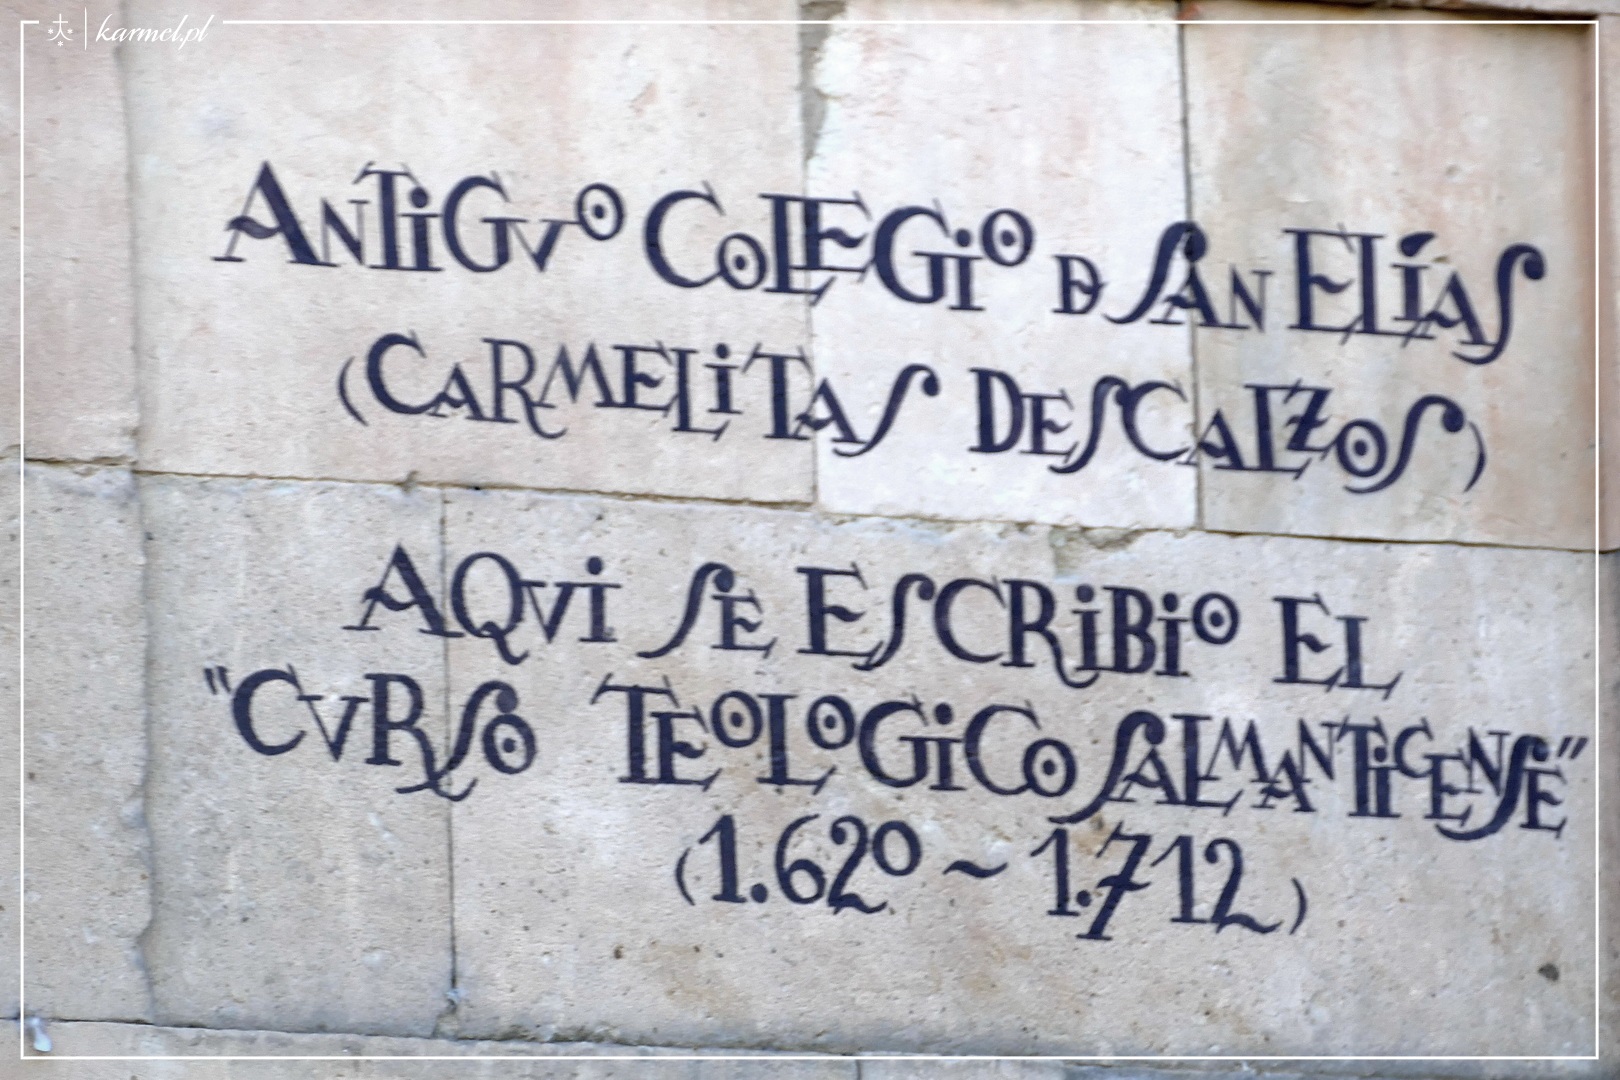 karmel.pl
ANTiGVO COLEGiO D SAN ELÍAS
(CARMELiTAS DESCALZOS)
AQVi SE ESCRiBiO EL
"CVRSO TEOLOGiCO SALMANTiCENSE"
(1.620 ~ 1.712)